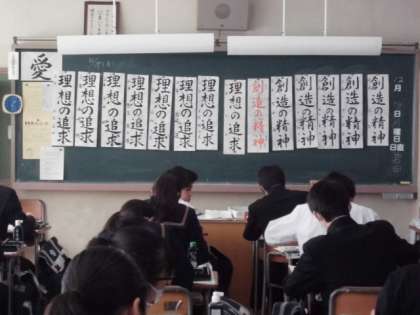 月 日 曜日
創造の精神
創造の精神
創造の精神
創造の精神
創造の精神
創造の精神
理想の追求
理想の追求
理想の追求
理想の追求
理想の追求
理想の追求
理想の追求
理想の追求
愛